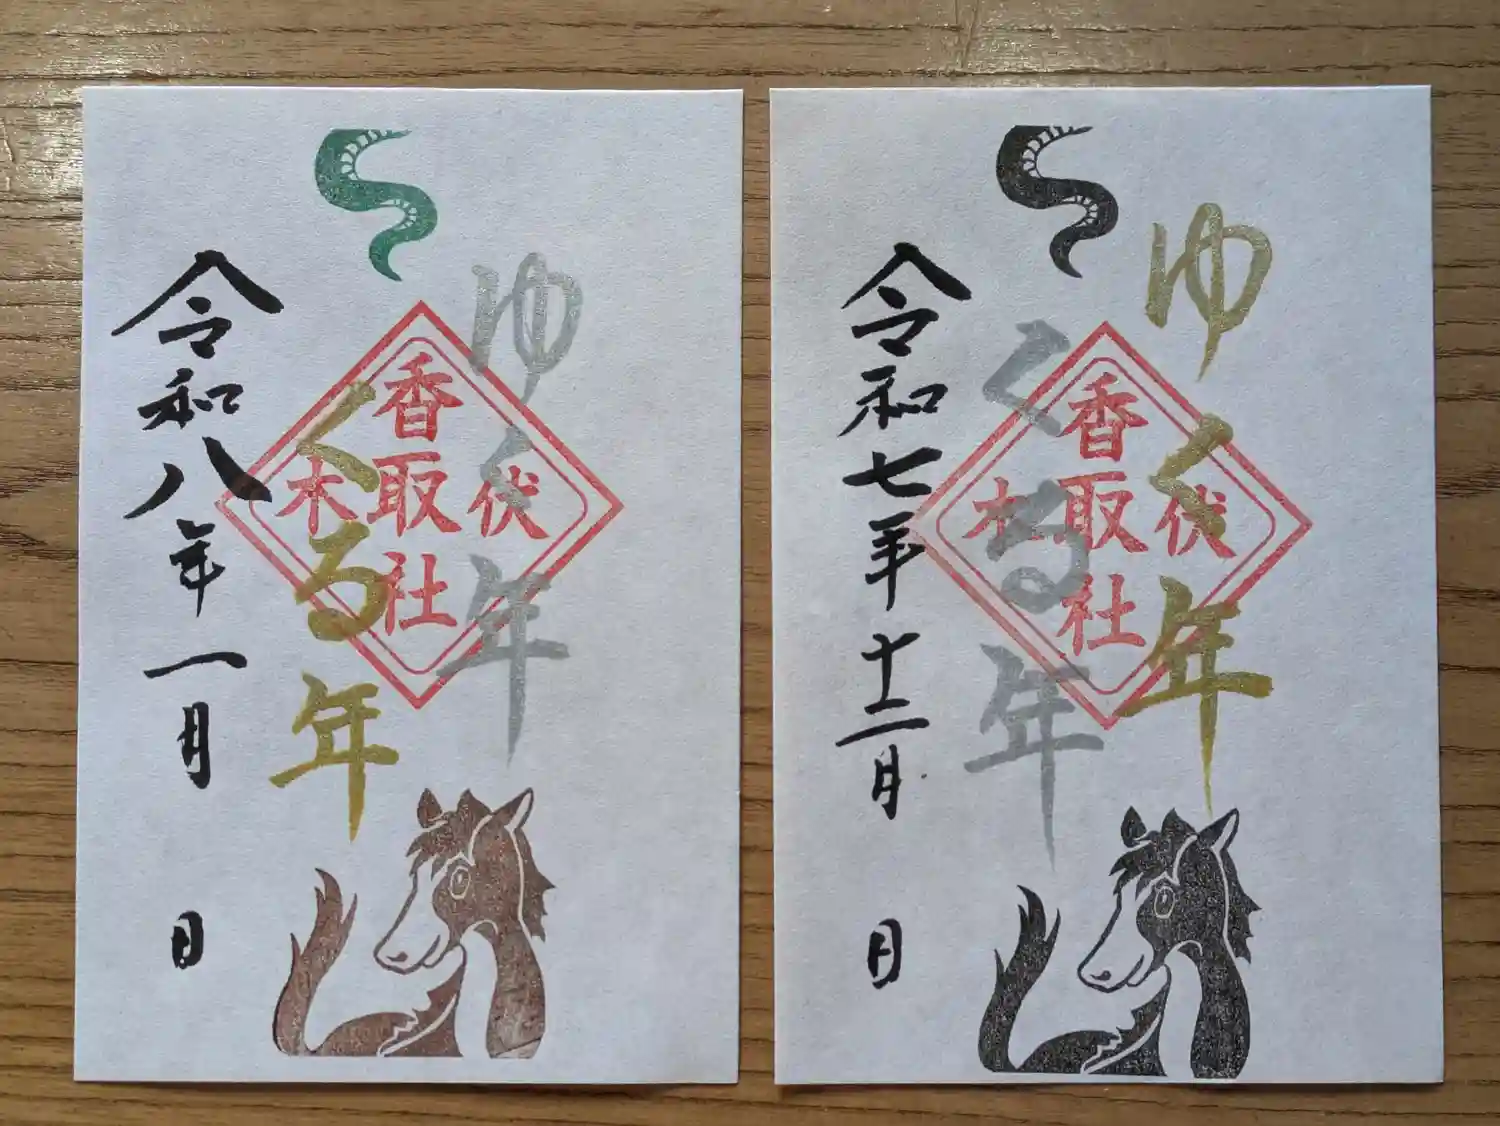 ゆく年
くる年
伏木
香取社
令和八年一月 日
ゆく年
くる年
伏木
香取社
令和七年十二月 日